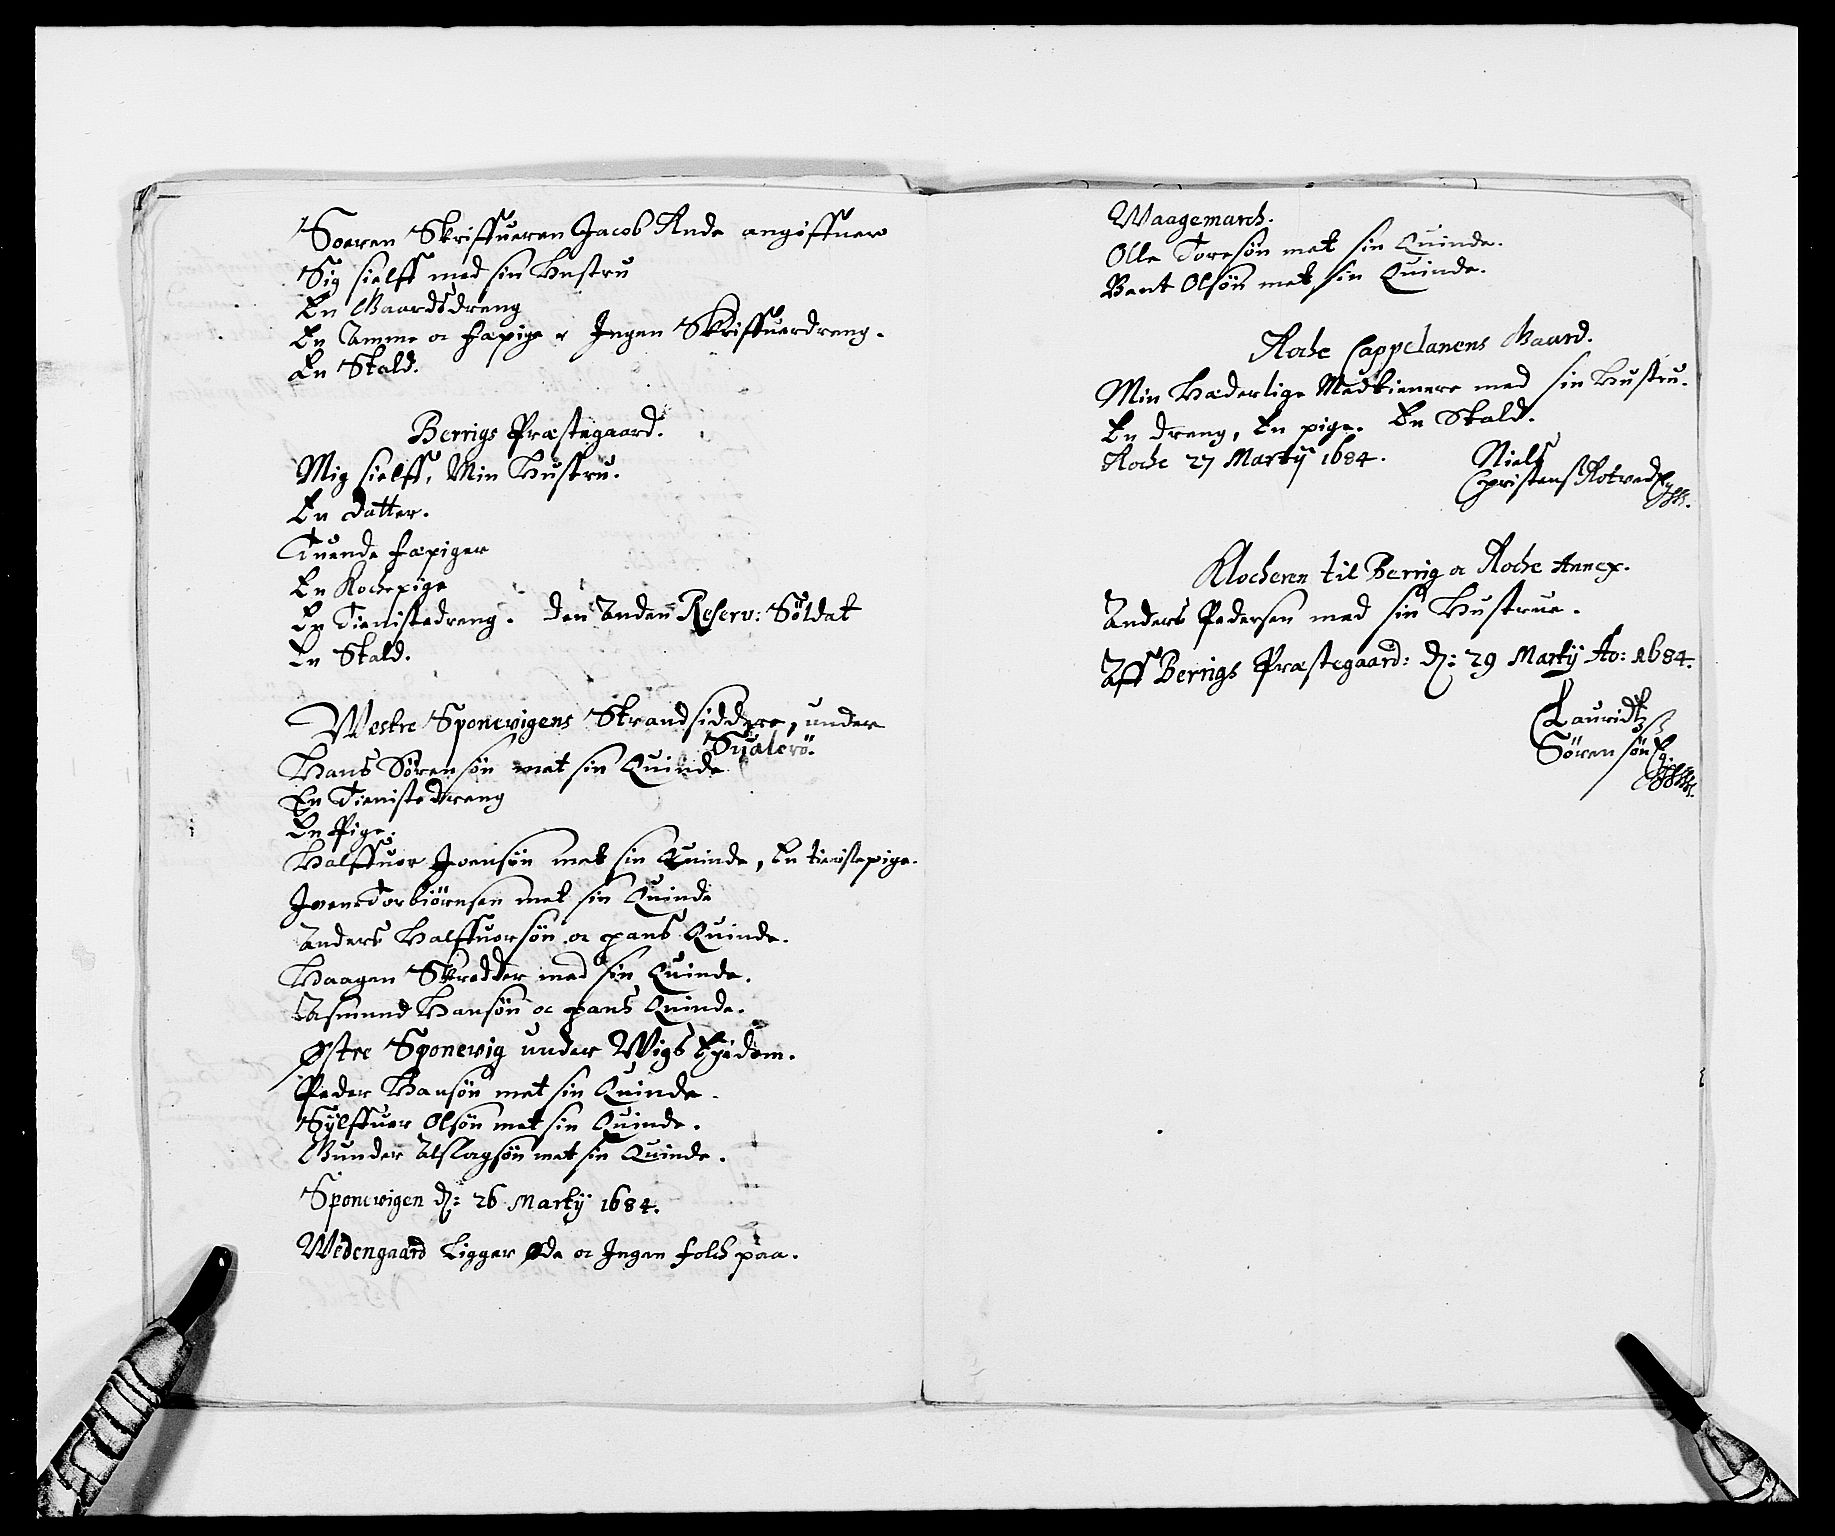 Soeren Skriffueren Jacob Ande angiffuer
Sig sielff med sin Hustru
En Gaardsdreng
En Amme oc Fæpige Ingen Skriffuerdreng.
En Stald.
Berrigs Præstegaard.
Mig sielff, Min Hustru.
En Datter.
Tuende Fæpiger
En Kochepige
En Tienistedreng. Den Anden Reserv: Søldat
En Stald.
Westre Sponevigens Strandsiddere, under
Sualerö.
Hans Sörensøn met sin Quinde
En Tieniste dreng
En Pige.
Halffuor Ivensøn met sin Quinde, En tienistepige.
Iven Torbiörnsen met sin Quinde
Anders Halffuorsøn oc hans Quinde.
Haagen Skredder med sin Quinde.
Asmund Hansøn oc hans Quinde.
Østre Sponevig under Wigs Ejedom.
Peder Hansøn met sin Quinde.
Sylffuer Olsøn met sin Quinde.
Gunder Aslagsøn met sin Quinde.
Sponevigen d: 26 Martij 1684.
Wedengaard Ligger øde oc Ingen folch paa.
Waagemarch.
Olle Toresøn met sin Quinde.
Bent Olsøn met sin Quinde.
Aoche Cappelanens Gaard.
Min Hæderlige Medtienere med sin Hustru.
En Dreng, En pige. En Stald.
Aoche 27 Martij 1684.
Niels
Christenß Rotved
Klocheren til Berrig oc Aoche Annex.
Anders Pedersen med sin Hustrue.
Aff Berrigs Præstegaard: d: 29 Martij Ao: 1684.
Lauridtz
Sörensøn